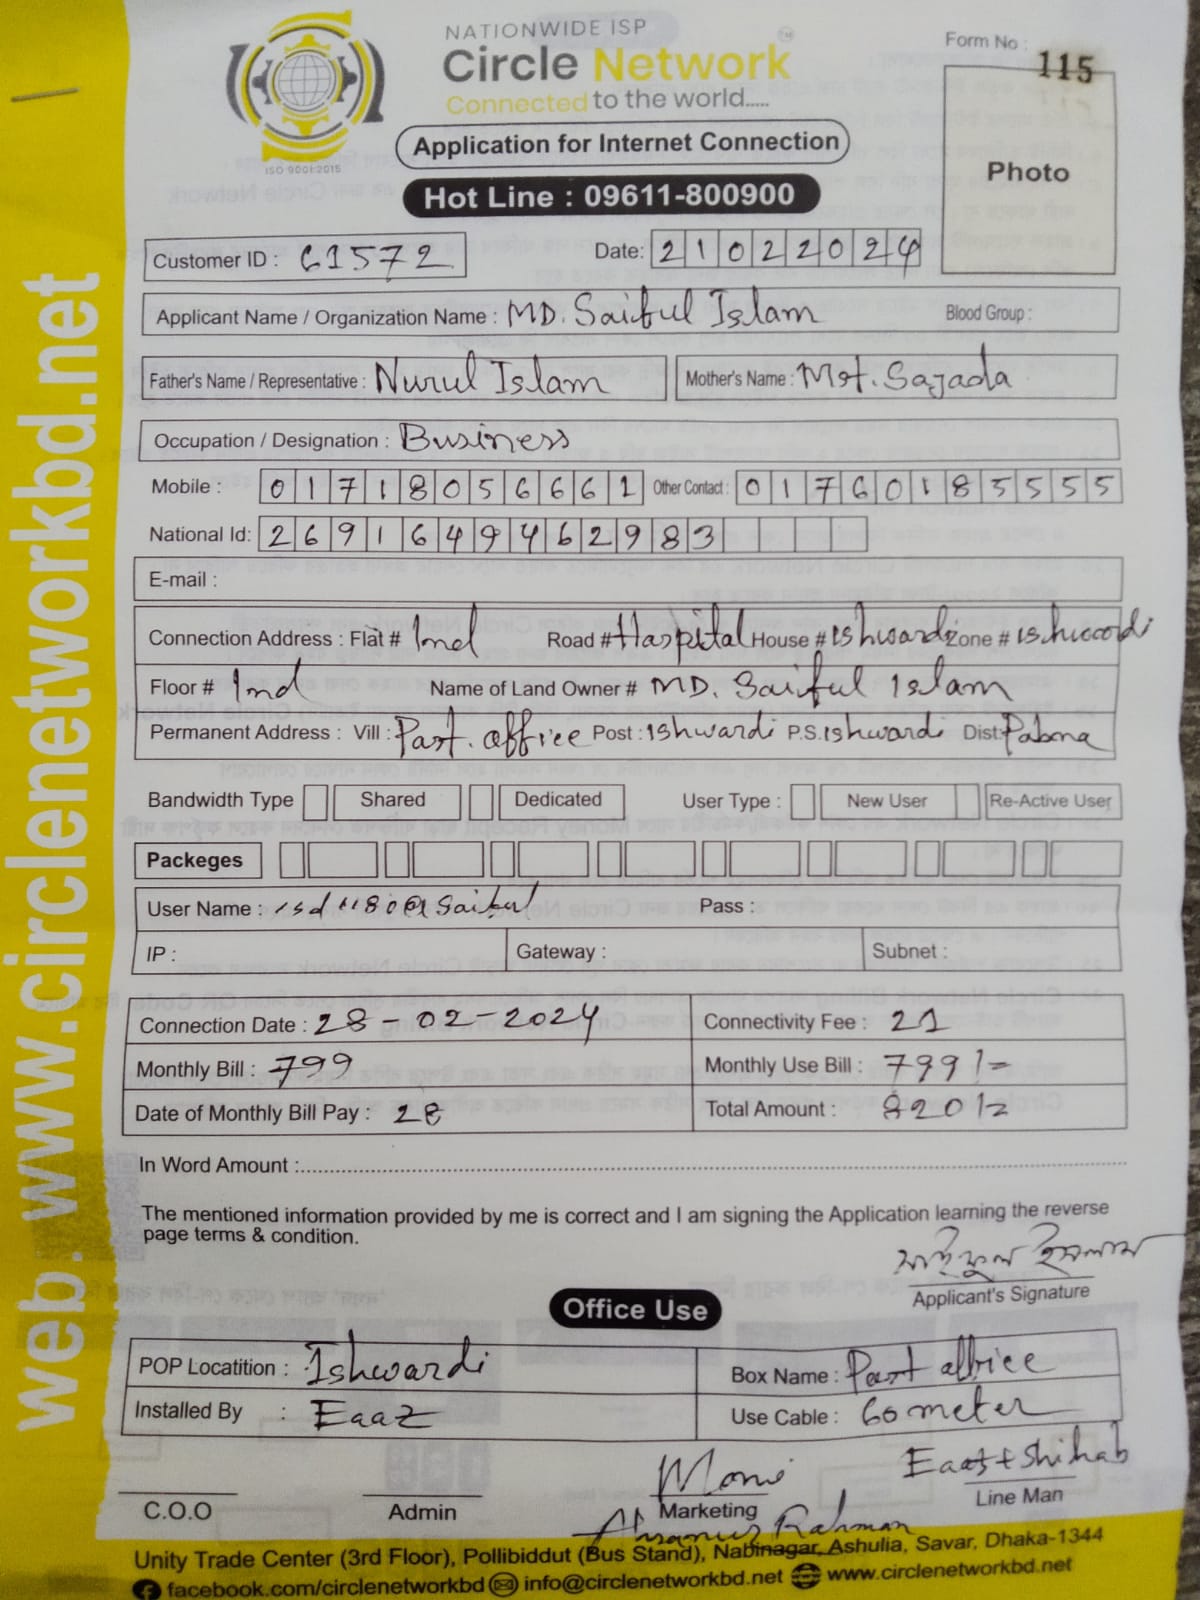 NATIONWIDE ISP
Circle Network
Connected to the world.....
ISO 9001:2015
Form No :
115
Photo
Application for Internet Connection
Hot Line : 09611-800900
Customer ID : 61572
Date: 21022024
Applicant Name / Organization Name : MD. Saiful Islam Blood Group :
Father's Name / Representative : Nurul Islam Mother's Name : Mst. Sajada
Occupation / Designation : Business
Mobile : 01718056661 Other Contact : 01760185555
National Id: 2691649462983
E-mail :
Connection Address : Flat # 1nd Road # Haspital House # ishwardi Zone # ishwardi
Floor # 1nd Name of Land Owner # MD. Saiful Islam
Permanent Address : Vill : Past. office Post : Ishwardi P.S. Ishwardi Dist: Pabna
Bandwidth Type Shared Dedicated User Type : New User Re-Active User
Packeges
User Name : Pass :
IP : Gateway : Subnet :
Connection Date : 28-02-2024 Connectivity Fee : 21
Monthly Bill : 799 Monthly Use Bill : 799/=
Date of Monthly Bill Pay : 28 Total Amount : 820/=
In Word Amount :
The mentioned information provided by me is correct and I am signing the Application learning the reverse
page terms & condition.
সাইফুল ইসলাম
Applicant's Signature
Office Use
POP Locatition : Ishwardi Box Name : Past office
Installed By : Eaaz Use Cable : 60 meter
Momi Eaaz + Shihab
C.O.O Admin Marketing Line Man
Rahman
Unity Trade Center (3rd Floor), Pollibiddut (Bus Stand), Nabinagar, Ashulia, Savar, Dhaka-1344
facebook.com/circlenetworkbd info@circlenetworkbd.net www.circlenetworkbd.net
web. www.circlenetworkbd.net